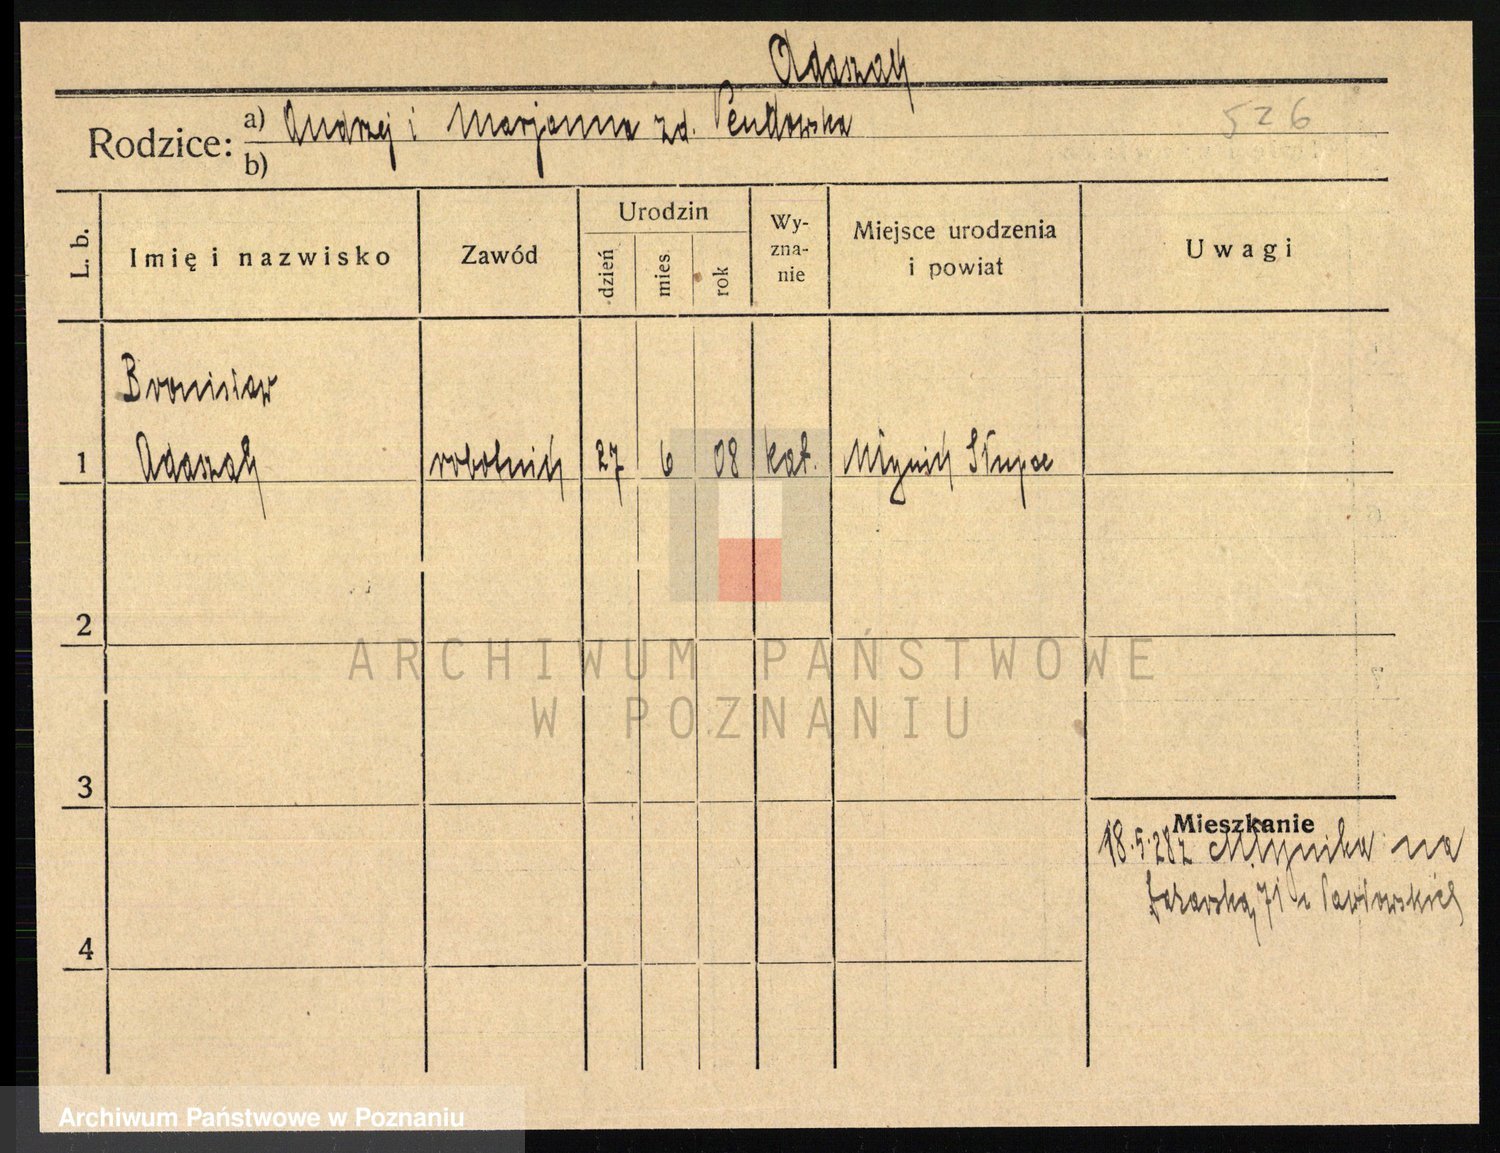 Adaszak
526
Rodzice: a) Andrzej i Marjanna zd.
b)
L. b.
Imię i nazwisko
Zawód
Urodzin
dzień
mies.
rok
Wy-
zna-
nie
Miejsce urodzenia
i powiat
Uwagi
Bronisław
1 Adaszak robotnik 27 6 08 kat. Młynik Słupce
2
3
4
Mieszkanie
18.5.28 z Młynika na
71 Pawłowskich
ARCHIWUM PAŃSTWOWE
W POZNANIU
Archiwum Państwowe w Poznaniu